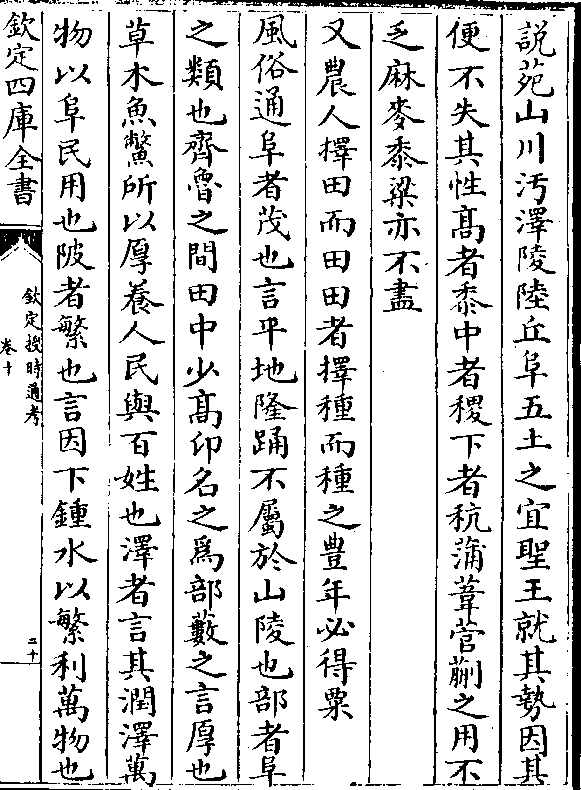 說苑山川汚澤陵陸丘阜五土之宜聖王就其勢因其
便不失其性高者黍中者稷下者秔蒲葦菅蒯之用不
乏麻麥黍粱亦不盡
又農人擇田而田田者擇種而種之豊年必得粟
風俗通阜者茂也言平地隆踊不屬於山陵也部者阜
之類也齊魯之間田中少髙卬名之爲部藪之言厚也
草木魚鱉所以厚養人民與百姓也澤者言其潤澤萬
物以阜民用也陂者繁也言因下鍾水以繁利萬物也
欽定四庫全書
欽定授時通考
卷十
二十